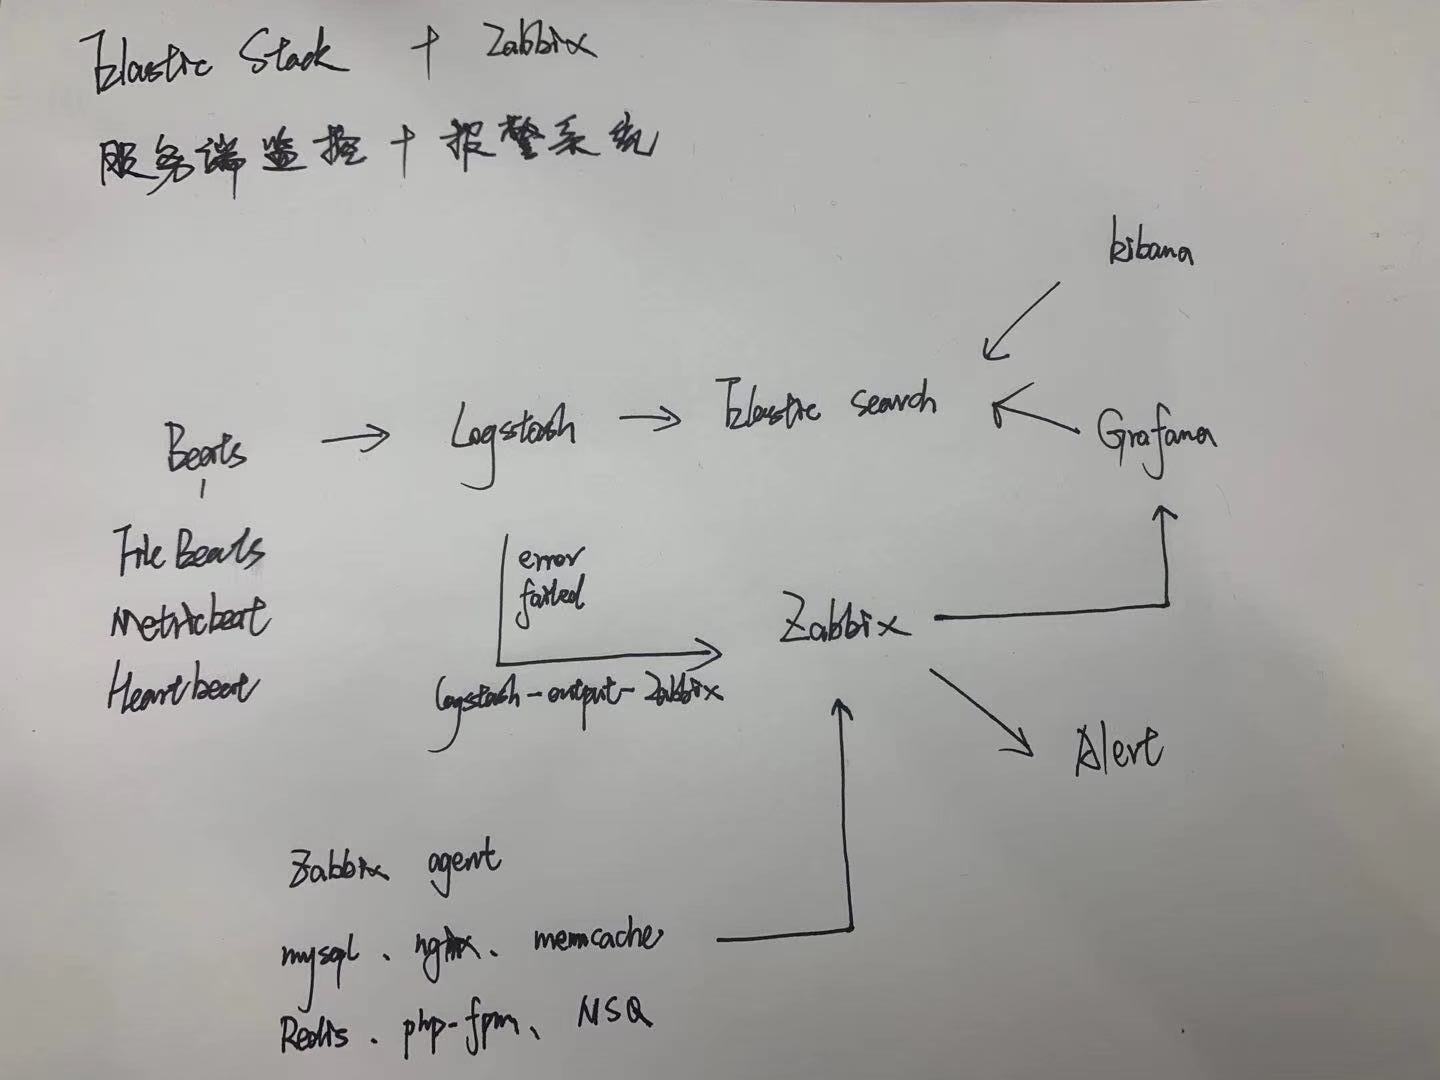 Elastic Stack + Zabbix
服务端监控+报警系统
kibana
Beats → Logstash → Elastic search
Grafana
FileBeats
Metricbeat
Heartbeat
error
failed
logstash-output-Zabbix
Zabbix
Alert
Zabbix agent
mysql、nginx、memcache
Redis、php-fpm、NSQ